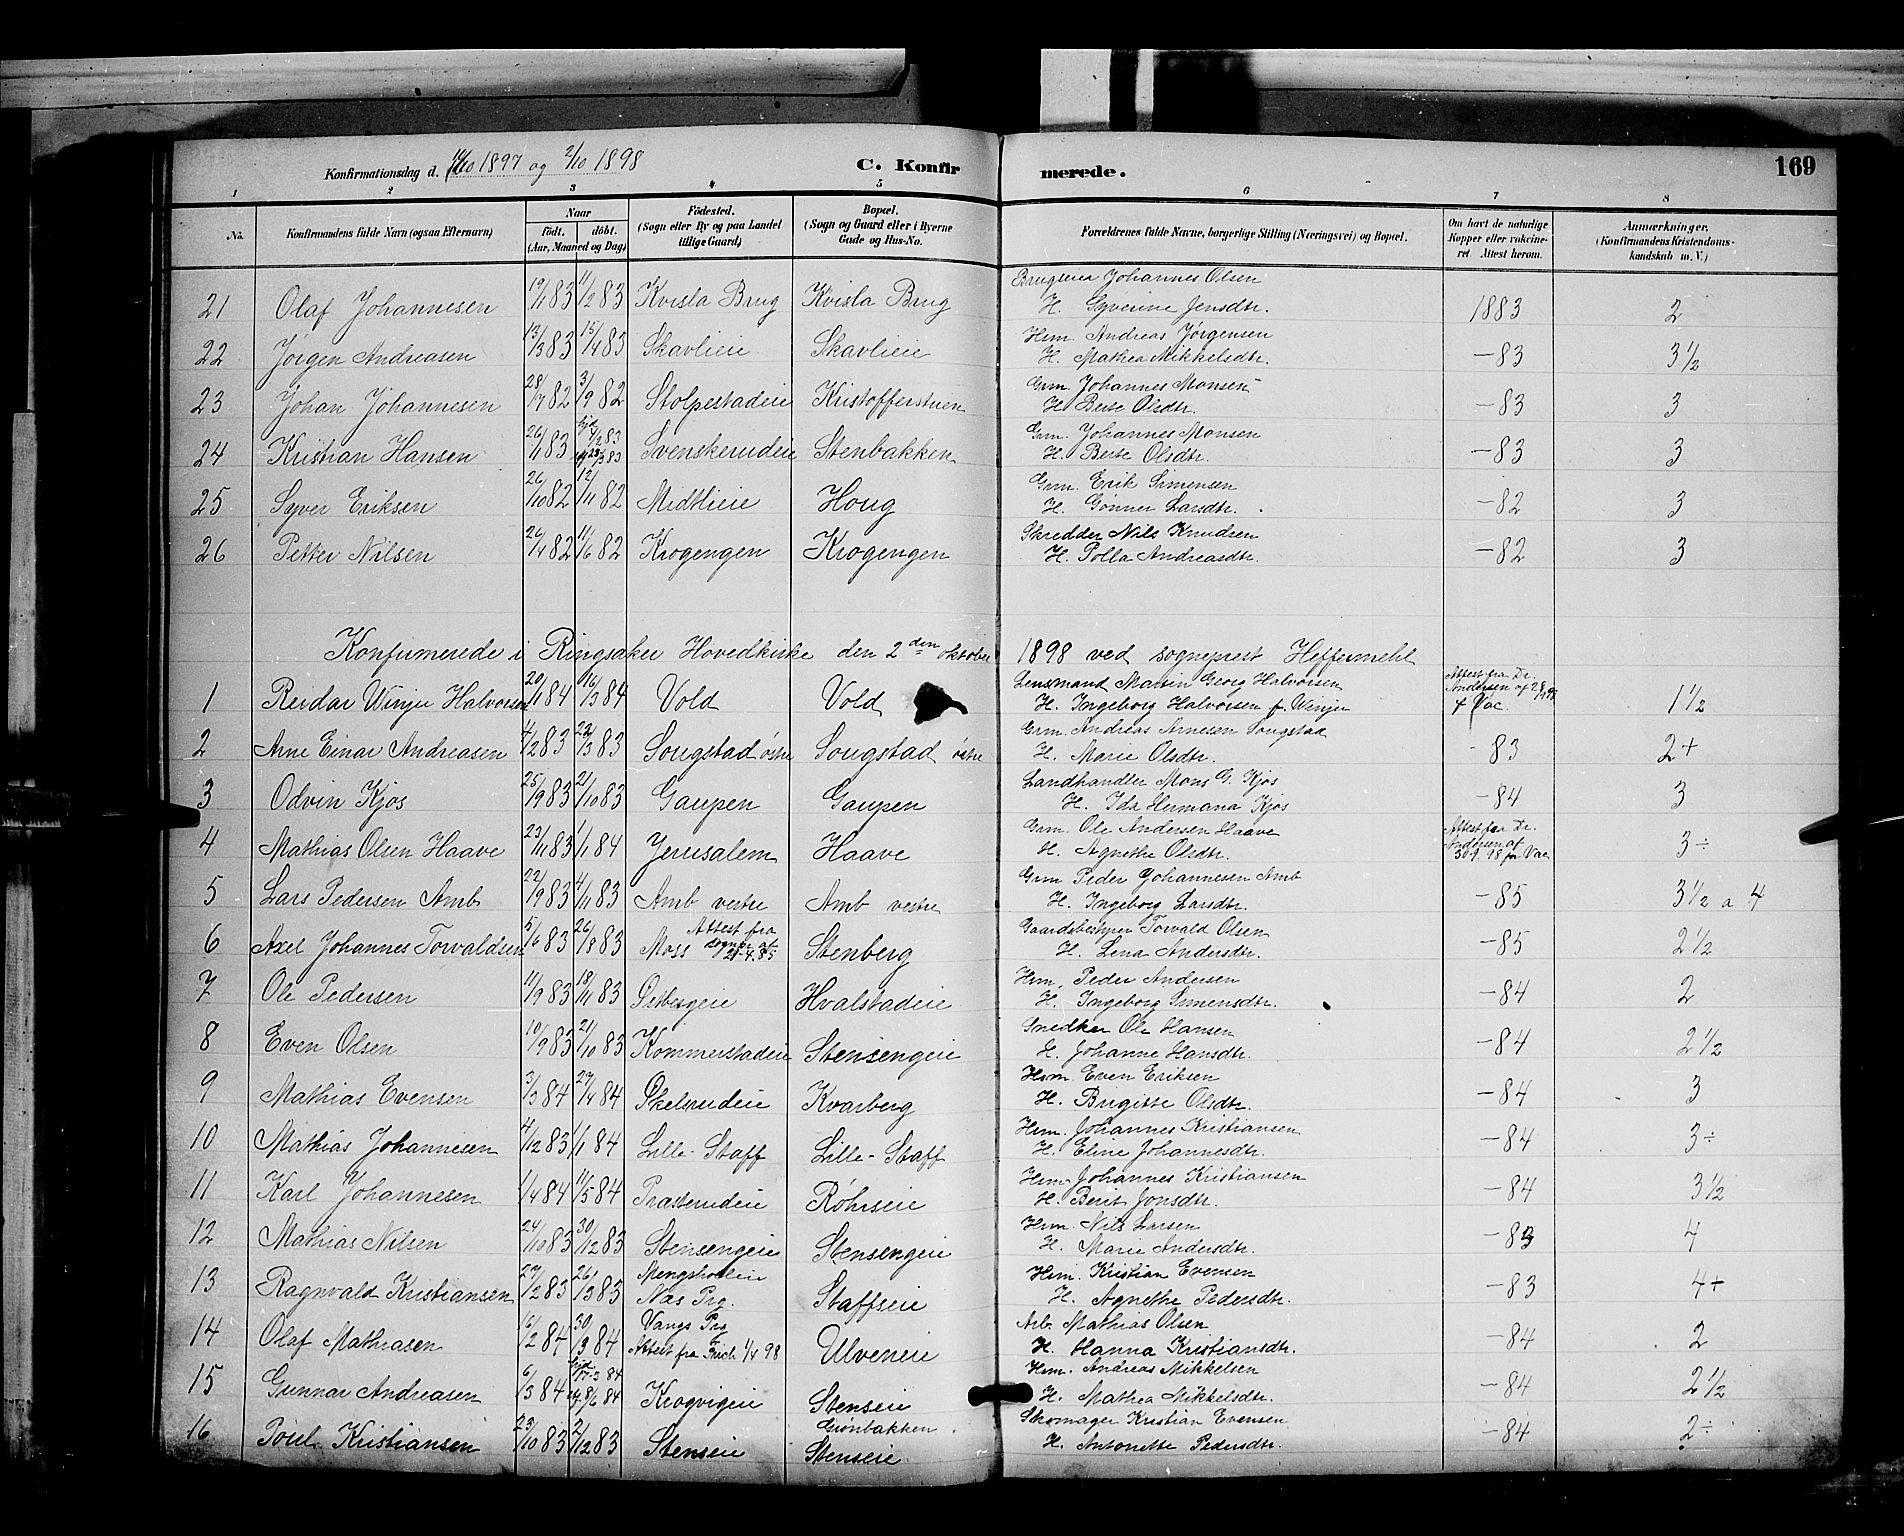 Konfirmationsdag d. 10/10 1897 og 2/10 1898 C. Konfirmerede. 169
1 2 3 4 5 6 7 8
No. Konfirmandens fulde Navn (ogsaa Efternavn) Naar født. døbt. (Aar, Maaned og Dag) Födested. (Sogn eller By og paa Landet tillige Gaard) Bopæl. (Sogn og Gaard eller i Byerne Gade og Hus-No. Forældrenes fulde Navne, borgerlige Stilling (Næringsvei) og Bopæl. Om havt de naturlige Kopper eller vakcineret. Attest herom. Anmærkninger. (Konfirmandens Kristendomskundskab m. V.)
21 Olaf Johannesen 19/1 83 11/2 83 Kvisla Brug Kvisla Brug Johannes Olsen H. Syverine Jensdtr. 1883 2
22 Jørgen Andreasen 13/3 83 15/4 83 Skavlieie Skavlieie Hm. Andreas Jørgensen H. Mathea Mikkelsdtr. -83 3 1/2
23 Johan Johannesen 28/7 82 3/9 82 Stolpestadeie Kristofferstuen Grm. Johannes Monsen H. Berte Olsdtr. -83 3
24 Kristian Hansen 26/1 83 hjd 4/2 83 Svenskerudeie Stenbakken Grm. Johannes Monsen H. Berte Olsdtr. -83 3
25 Syver Eriksen 26/10 82 12/11 82 Midtlieie Houg Grm. Erik Simensen H. Gønner Larsdtr. -82 3
26 Petter Nilsen 26/4 82 11/6 82 Krogengen Krogengen Skredder Nils Knudsen H. Polla Andreasdtr. -82 3
Konfirmerede i Ringsaker Hovedkirke den 2den oktober 1898 ved sogneprest Heffermehl
1 Reidar Winje Halvorsen 20/1 84 16/3 84 Vold Vold Lensmand Martin Georg Halvorsen H. Ingeborg Halvorsen f. Winjer Attest fra Dr. Andersen af f Vac 1 1/2
2 Arne Einar Andreasen 4/2 83 23/3 83 Sougstad østre Sougstad østre Grm. Andreas Arnesen Sougstad H. Marie Olsdtr. -83 2+
3 Odvin Kjos 25/9 83 21/10 83 Gaupen Gaupen Landhandler Mons G. Kjos H. Ida Hermana Kjos -84 3
4 Mathias Olsen Haave 23/11 83 1/1 84 Jerusalem Haave Grm. Ole Andersen Haave H. Agnethe Olsdtr. Attest fra Dr. Andersen af 30.9.98 for Vac. 3÷
5 Lars Pedersen Amb 22/9 83 4/11 83 Amb vestre Amb vestre Grm Peder Johannesen Amb H. Ingeborg Larsdtr. -85 3 1/2 a 4
6 Axel Johannes Torvaldsen 5/6 83 26/8 83 Moss Attest fra sognpr. af 21-4.85 Stenberg Gaardsbestyrer Torvald Olsen H. Lena Andersdtr. -85 2 1/2
7 Ole Pedersen 11/9 83 18/11 83 Hvalstadeie Hm. Peder Andersen H. Ingeborg Simensdtr. -84 2
8 Even Olsen 10/9 83 21/10 83 Kommerstadeie Stensengeie Snedker Ole Hansen H. Johanne Hansdtr. -84 2 1/2
9 Mathias Evensen 3/3 84 27/4 84 Skelsrudeie Kvarberg Hm. Even Eriksen H. Brigitte Olsdtr. -84 3
10 Mathias Johannesen 4/12 83 1/1 84 Lille-Staff Lille-Staff Hm. Johannes Kristiansen H. Eline Johannesdtr. -84 3÷
11 Karl Johannesen 1/4 84 11/5 84 Prasterudeie Røhrseie Hm. Johannes Kristiansen H. Berit Jonsdtr. -84 3 1/2
12 Mathias Nilsen 24/10 83 30/12 83 Stensengeie Stensengeie Hm. Nils Larsen H. Marie Andersdtr. -83 4
13 Ragnvald Kristiansen 27/2 83 26/3 83 Mengsholeie Næs Prg. Staffseie Hm. Kristian Evensen H. Agnethe Pedersdtr. -83 4+
14 Olaf Mathiasen 16/2 84 30/3 84 Vangs Prg Attest fra 1/4 98 Ulveneie Arb. Mathias Olsen H. Hanna Kristiansdtr. -84 2
15 Gunnar Andreasen 6/3 84 hjd 17-3 84 8/6 84 Krogvigeie Stenseie Hm. Andreas Mikkelsen H. Mathea Mikkelsdtr. -84 2 1/2
16 Poul Kristiansen 23/10 83 2/12 83 Stenseie Grønbakken Stenseie Skomager Kristian Evensen H. Antonette Pedersdtr. -84 2÷